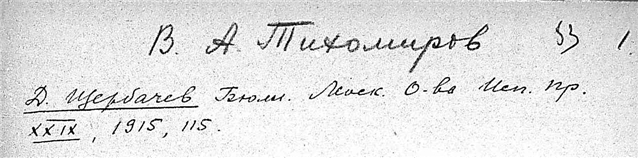 В. А. Тихомиров 53 1.
Д. Щербачев Бюлл. Моск. О-ва Исп. пр.
XXIX, 1915, 115.